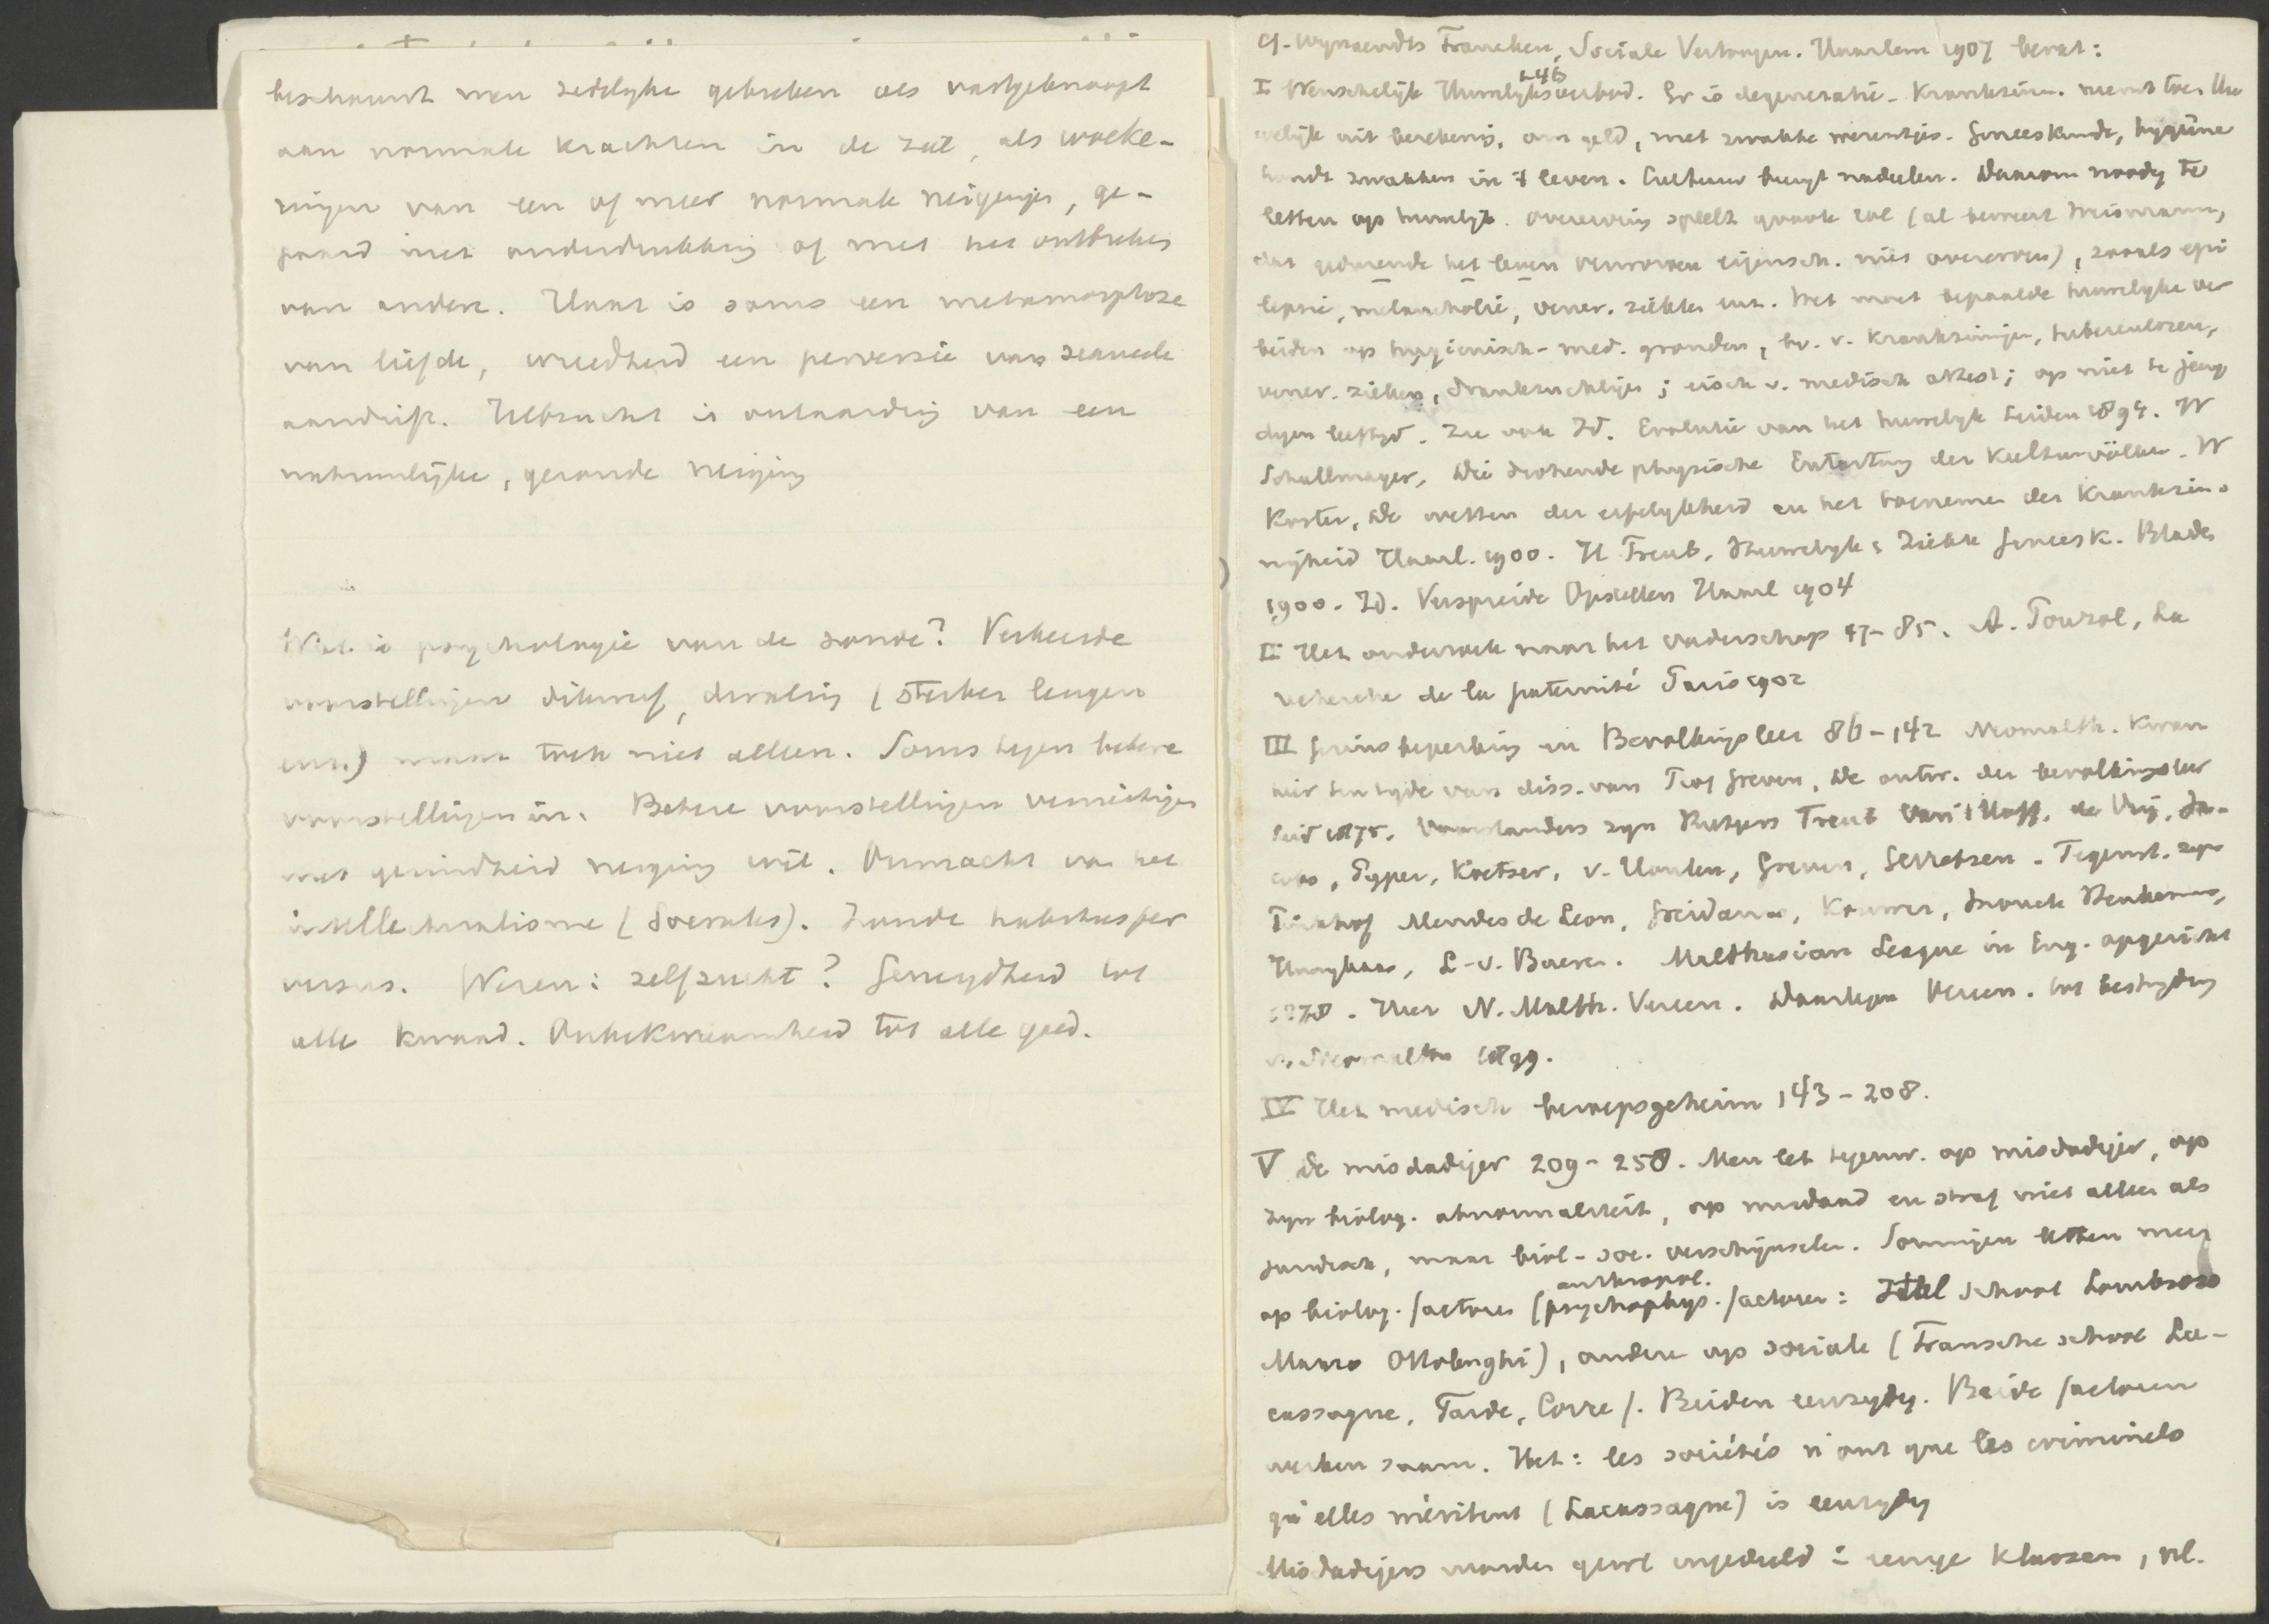 beschouwt men zedelyke gebreken als vastgeknoopt
aan normale krachten in de ziel, als woeke-
ringen van een of meer normale neigingen, ge-
paard met onderdrukking of met het ontbreken
van andere. Haat is soms een metamorphose
van liefde, wreedheid een perversie van sexueele
aandrift. Hebzucht is ontaarding van een
natuurlijke, gezonde neiging
Wat is psychologie van de zonde? Verkeerde
voorstellingen dikwijls, dwaling (sterker leugen
enz.) maar toch niet alleen. Soms tegen betere
voorstellingen in. Betere voorstellingen vernietigen
niet gezindheid neiging wil. Onmacht van het
intellectualisme (Socrates). Zonde habitus per
versus. Wezen: zelfzucht? Geneigdheid tot
alle kwaad. Onbekwaamheid tot alle goed.
Wynaendts Francken, Sociale Vertoogen. Haarlem 1907 bevat:
I Wenschelijk Huwelyksverbod. 1-46 Er is degeneratie. Krankzinn. neemt toe. Huw
welijk uit berekening, om geld, met zwakke wezentjes. Geneeskunde, hygiëne
houdt zwakken in 't leven. Cultuur brengt nadeelen. Daarom noodig te
letten op huwelyk. overerving speelt groote rol (al beweert Weismann,
dat gedurende het leven verworven eigensch. niet overerven), zooals epi
lepsie, melancholie, vener. ziekten enz. Wet moet bepaalde huwelyke ver
bieden op hygienisch-med. gronden, bv. v. Krankzinnigen, tuberculozen,
vener. zieken, drankzuchtigen; eisch v. medisch attest; op niet te jeug
digen leeftyd. Zie ook Id. Evolutie van het huwelyk Leiden 1894. W
Schallmayer, Die drohende physische Entartung der Kulturvölker. W
Koster, De wetten der erfelykheid en het toenemen der Krankzin-
nigheid Haarl. 1900. H Treub, Huwelyk & Ziekte Geneesk. Bladen
1900. Id. Verspreide Opstellen Haarl 1904
II Het onderzoek naar het vaderschap 47-85. A. Pouzol, La
recherche de la paternité Paris 1902
III Gezinsbeperking en Bevolkingsleer 86-142 Neomalth. Kwam
hier ten tyde van diss. van Greven, De ontw. der bevolkingsleer
Leid 1875. Voorstanders zyn Rutgers Treub van 't Hoff, de Vrij, Ja-
cobs, Pyper, Koetser, v. Houten, Greven, Gerretsen. Tegenst. zyn
Mendes de Leon, Greidanus, Kouwer, Snouck Henkemans,
L. v. Baeren. Malthusian League in Eng. opgericht
1878. Hier N. Malth. Vereen. Daartegen Vereen. tot bestryding
v. Neomalth 1899.
IV Het medisch beroepsgeheim 143-208.
V De misdadiger 209-258. Men let tegenw. op misdadiger, op
zyn biolog. abnormaliteit, op misdaad en straf niet alleen als
juridisch, maar biol-soc. verschijnselen. Sommigen letten meer
op biolog. factoren (psychophys. anthropol. factoren: Ital school Lombroso
Marro Ottolenghi), andere op sociale (Fransche school La-
cassagne, Tarde, Corre). Beiden eenzydig. Beide factoren
werken saam. Het: les sociétés n'ont que les criminels
qu'elles méritent (Lacassagne) is eenzydig
Misdadigers worden gewl ingedeeld in eenige klassen, nl.